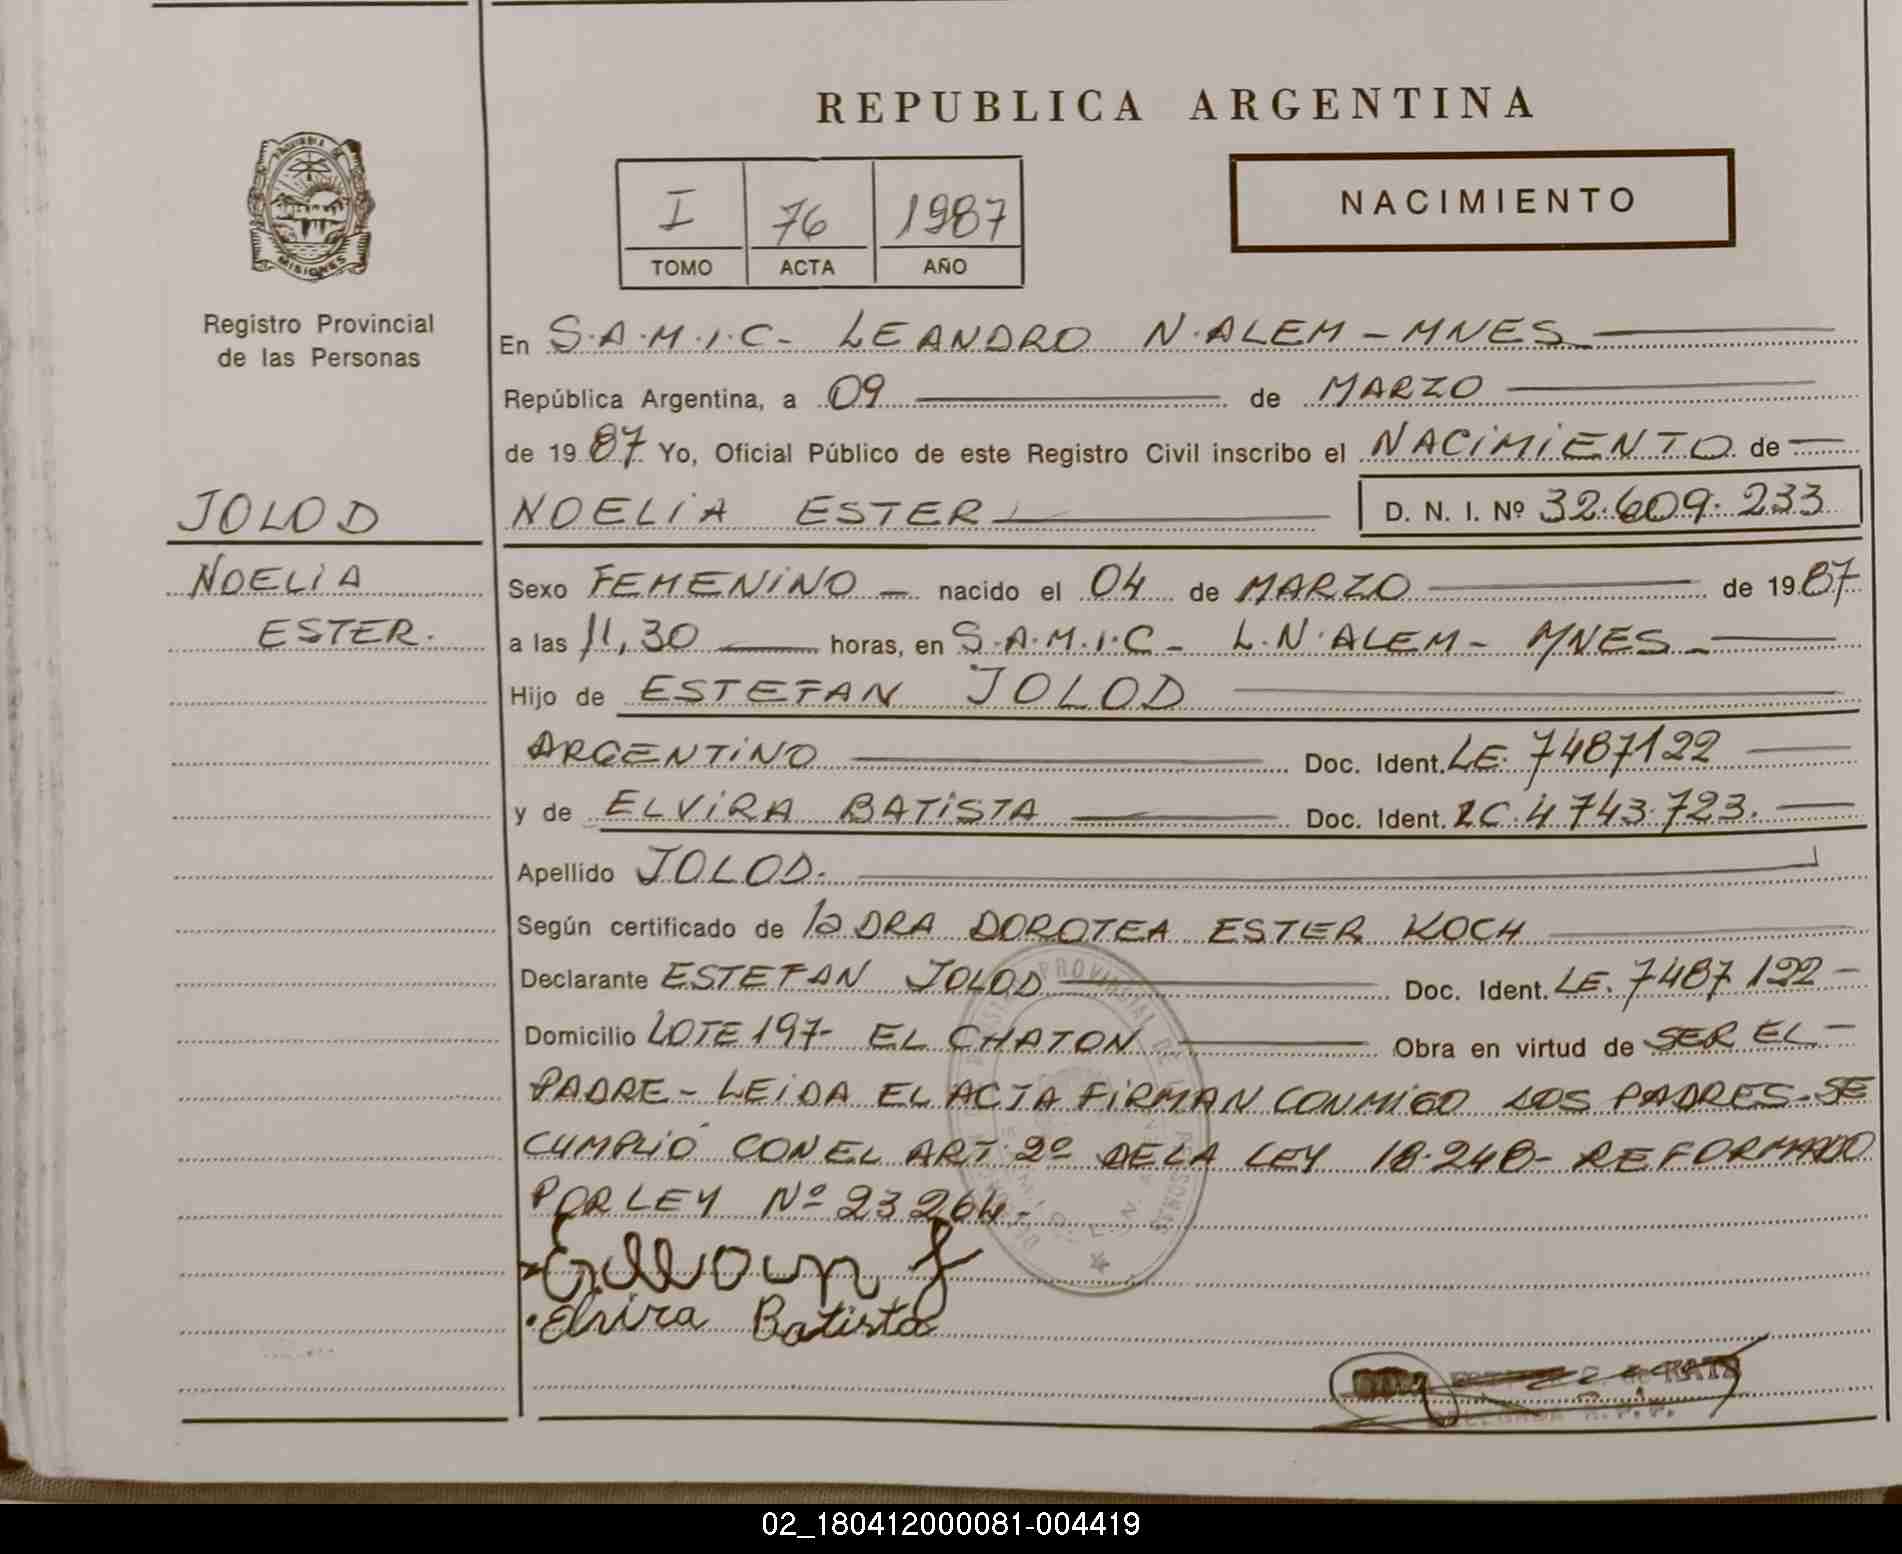 REPUBLICA ARGENTINA
PROVINCIA DE
MISIONES
I 76 1987
TOMO ACTA AÑO
NACIMIENTO
Registro Provincial
de las Personas
JOLOD
NOELIA
ESTER.
En S.A.M.I.C- LEANDRO N.ALEM-MNES
República Argentina, a 09 de MARZO
de 1987 Yo, Oficial Público de este Registro Civil inscribo el NACIMIENTO de
NOELIA ESTER D. N. I. Nº 32.609.233
Sexo FEMENINO - nacido el 04 de MARZO de 1987
a las 11,30 horas, en S.A.M.I.C- L.N.ALEM- MNES-
Hijo de ESTEFAN JOLOD
ARGENTINO Doc. Ident. LE. 7487122
y de ELVIRA BATISTA Doc. Ident. LC.4743.723.
Apellido JOLOD.
Según certificado de la DRA DOROTEA ESTER KOCH
Declarante ESTEFAN JOLOD Doc. Ident. LE. 7487122-
Domicilio LOTE 197- EL CHATON Obra en virtud de SER EL-
PADRE- LEIDA EL ACTA FIRMAN CONMIGO LOS PADRES-SE
CUMPLIÓ CON EL ART 2º DE LA LEY 18.248- REFORMADO
POR LEY Nº 23264-
Elvira Batista
02_180412000081-004419